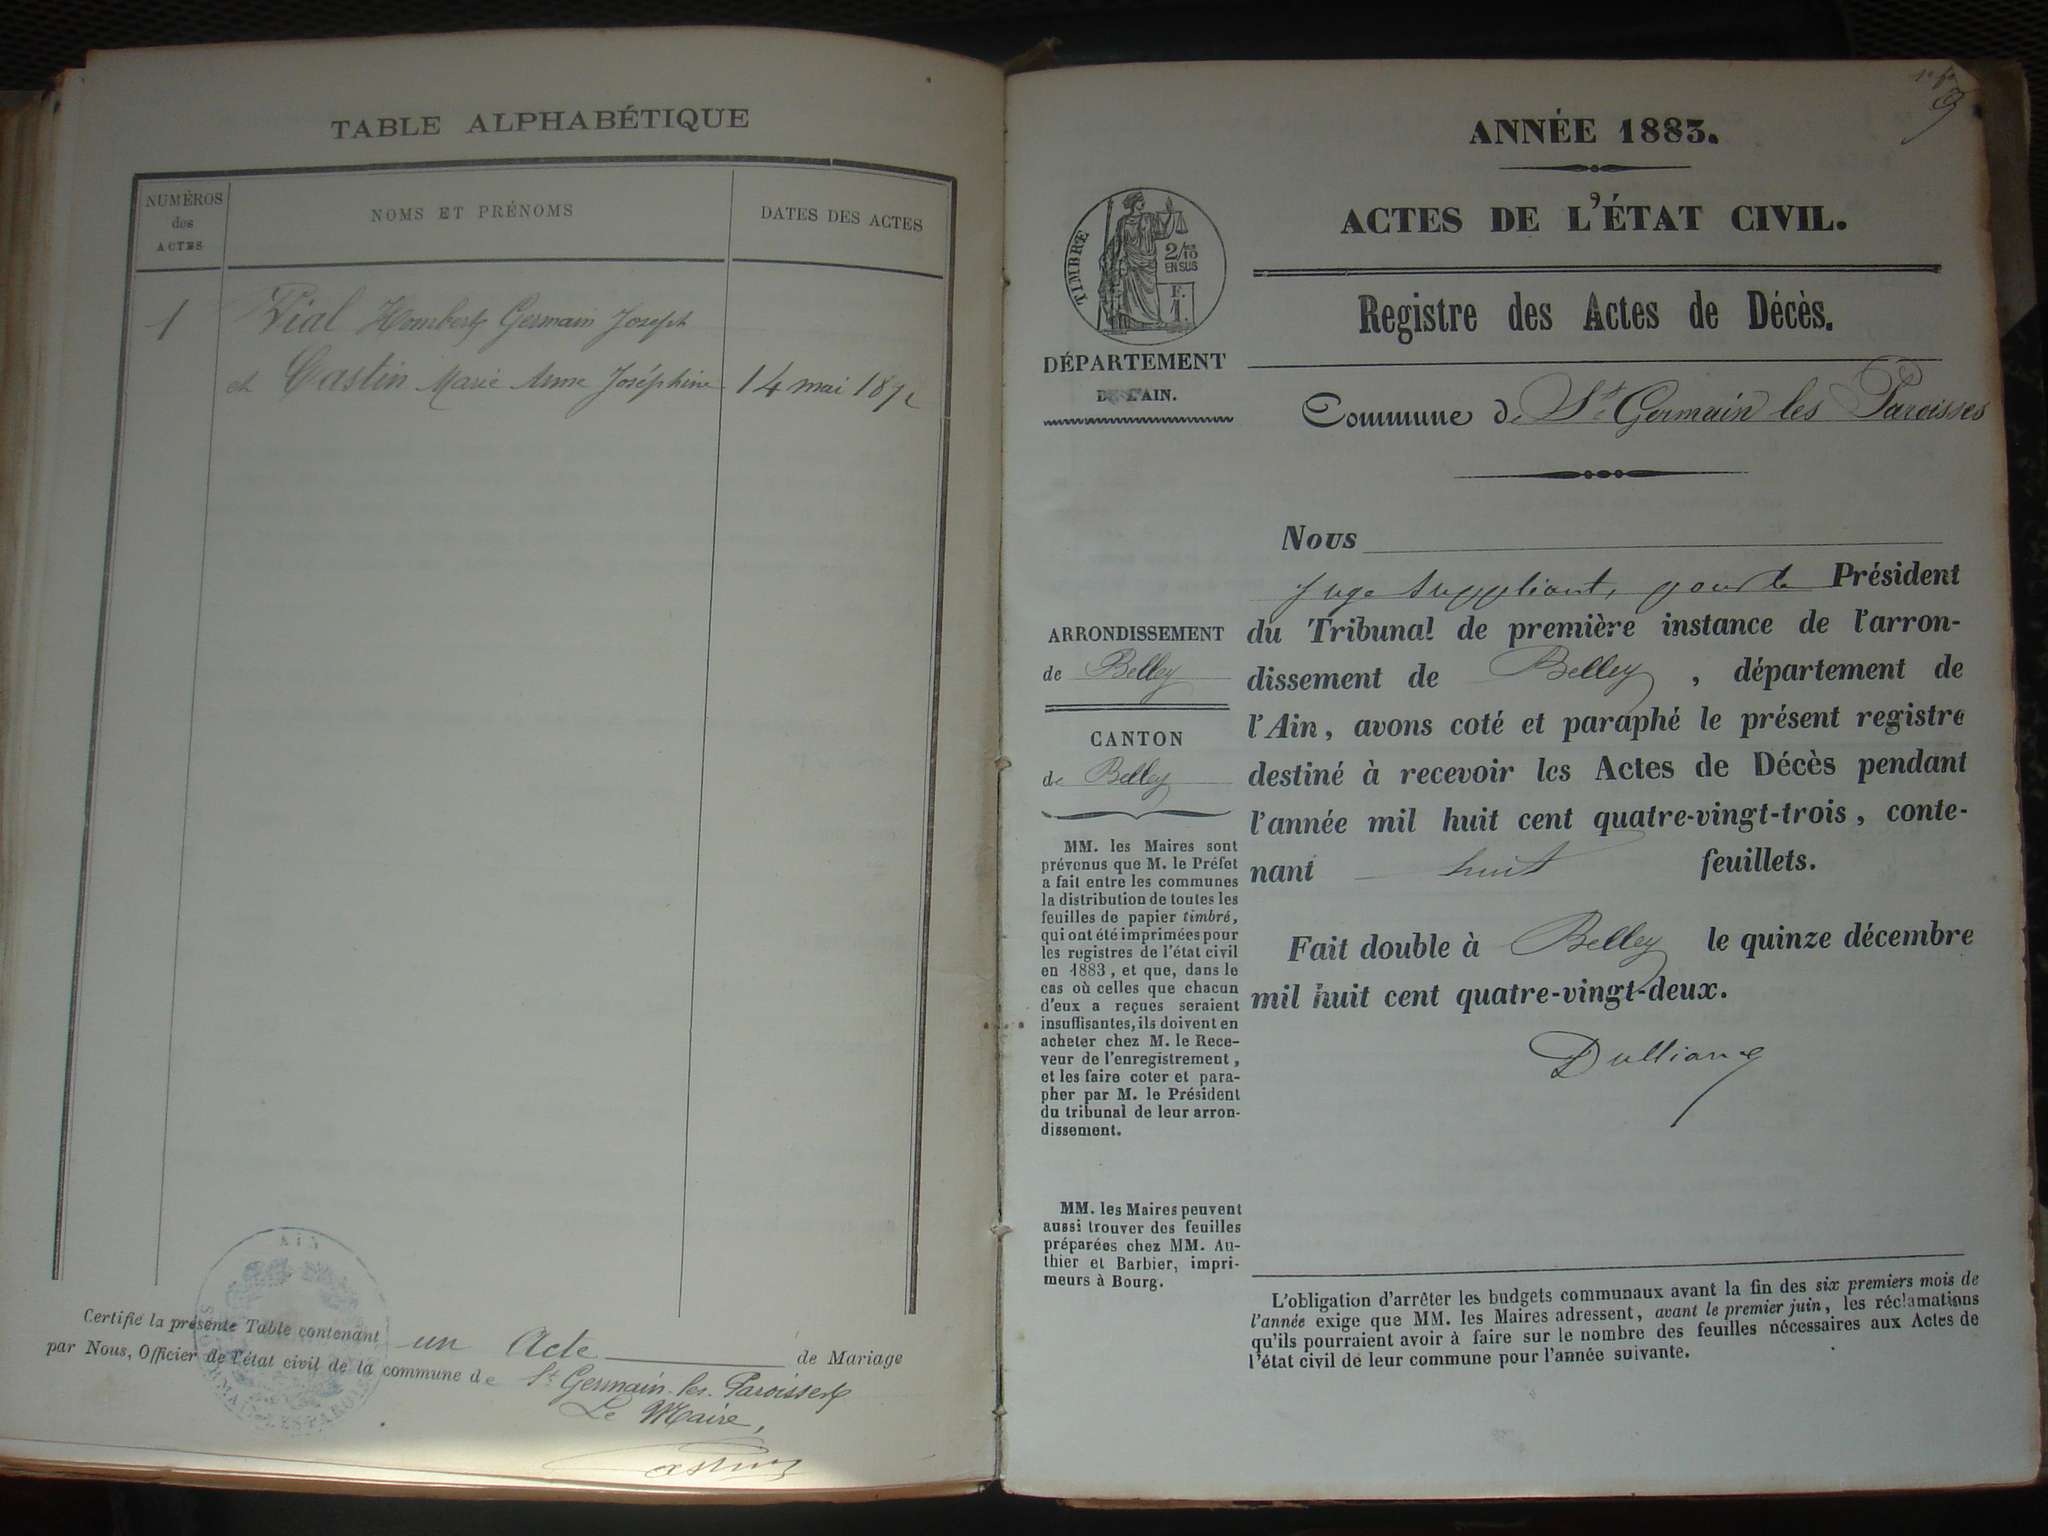 TABLE ALPHABÉTIQUE
NUMÉROS
des
ACTES
NOMS ET PRÉNOMS
DATES DES ACTES
1 Vial Humbert Germain Joseph
et Castin Marie Anne Joséphine 14 mai 187
AIN
Certifié la présente Table contenant un Acte de Mariage
par Nous, Officier de l'état civil de la commune de St Germain-les-Paroisses
Le Maire,
ANNÉE 1883.
ACTES DE L'ÉTAT CIVIL.
TIMBRE
2/10
EN SUS
F.
1.
Registre des Actes de Décès.
DÉPARTEMENT
DE L'AIN.
Commune de St Germain les Paroisses
Nous
Juge suppléant, pour le Président
du Tribunal de première instance de l'arron-
dissement de Belley, département de
l'Ain, avons coté et paraphé le présent registre
destiné à recevoir les Actes de Décès pendant
l'année mil huit cent quatre-vingt-trois, conte-
nant huit feuillets.
Fait double à Belley le quinze décembre
mil huit cent quatre-vingt-deux.
ARRONDISSEMENT
de Belley
CANTON
de Belley
MM. les Maires sont
prévenus que M. le Préfet
a fait entre les communes
la distribution de toutes les
feuilles de papier timbré,
qui ont été imprimées pour
les registres de l'état civil
en 1883, et que, dans le
cas où celles que chacun
d'eux a reçues seraient
insuffisantes, ils doivent en
acheter chez M. le Rece-
veur de l'enregistrement,
et les faire coter et para-
pher par M. le Président
du tribunal de leur arron-
dissement.
MM. les Maires peuvent
aussi trouver des feuilles
préparées chez MM. Au-
thier et Barbier, impri-
meurs à Bourg.
L'obligation d'arrêter les budgets communaux avant la fin des six premiers mois de
l'année exige que MM. les Maires adressent, avant le premier juin, les réclamations
qu'ils pourraient avoir à faire sur le nombre des feuilles nécessaires aux Actes de
l'état civil de leur commune pour l'année suivante.